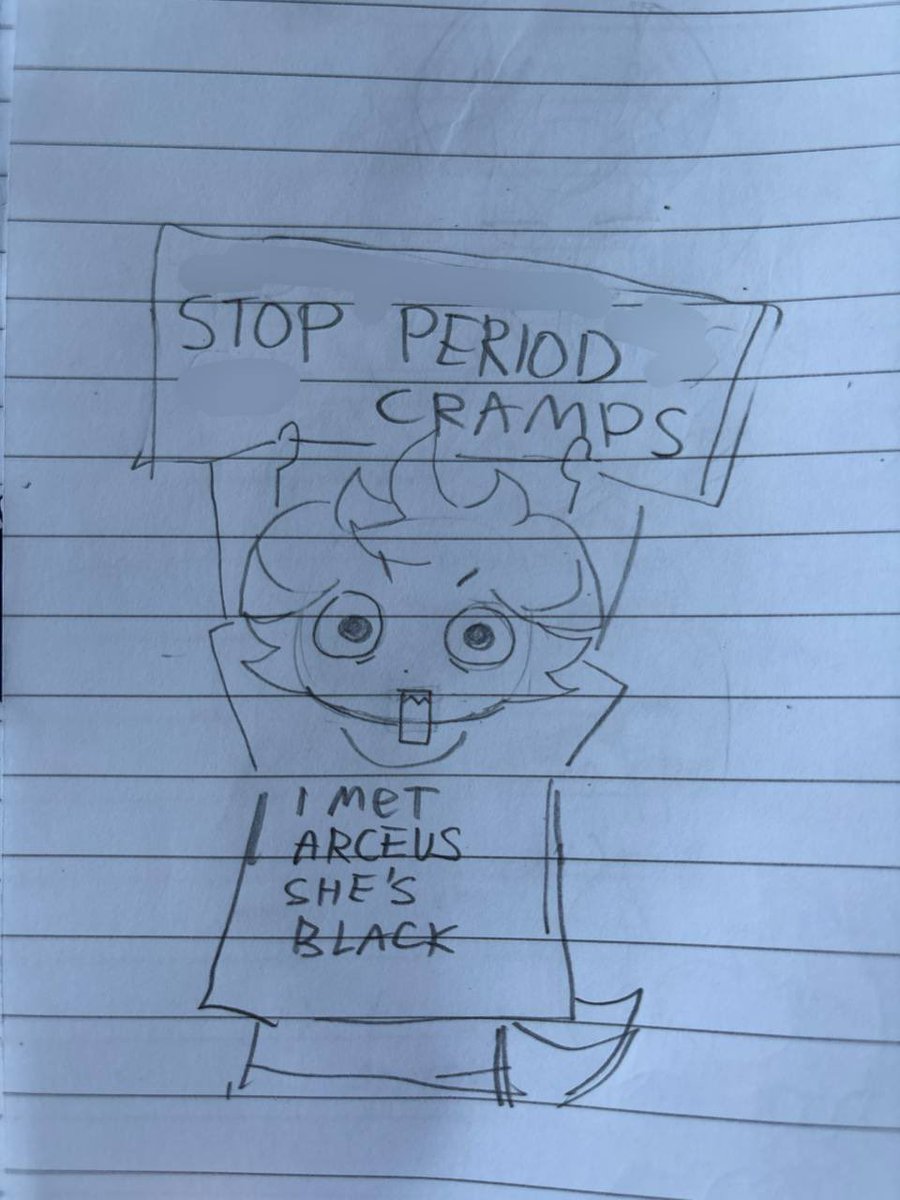 STOP PERIOD
CRAMPS
I MeT
ARCEUS
SHE'S
BLACK